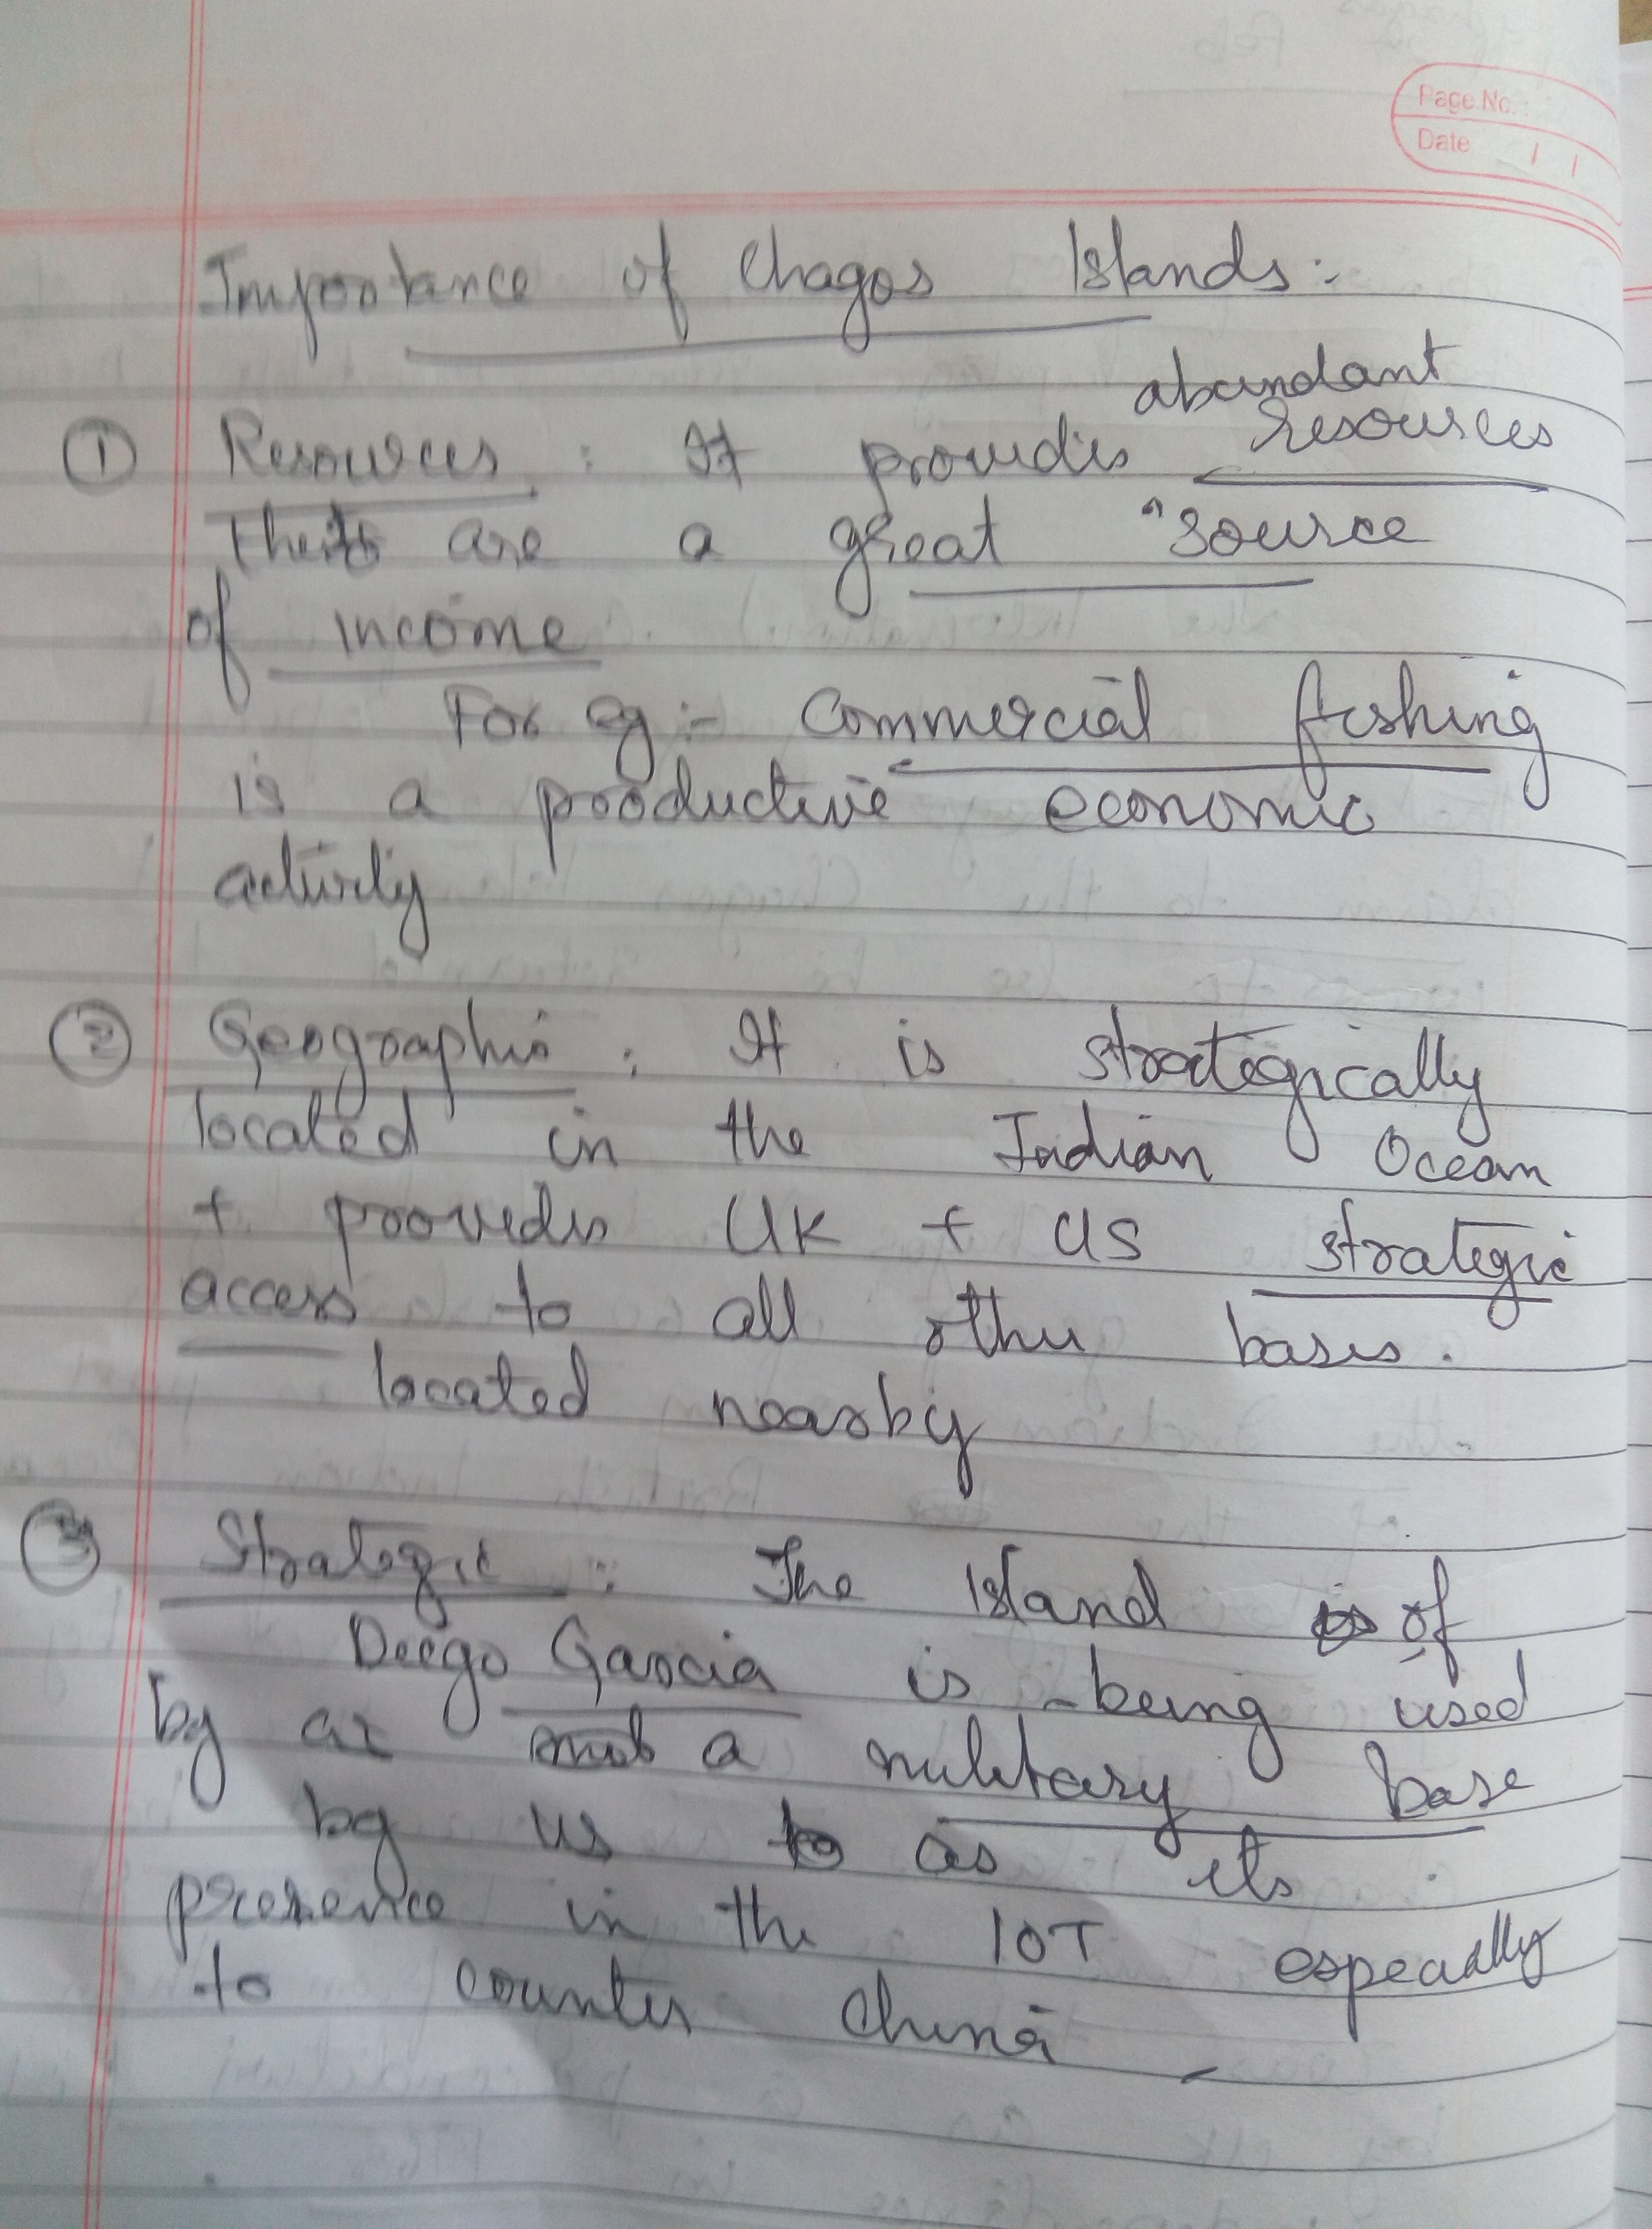 Page No. :
Date / /
Importance of Chagos Islands :-
abundant
① Resources : It provides resources
that are a great "source
of income
For eg :- Commercial fishing
is a productive economic
activity
② Geographic : It is strategically
located in the Indian Ocean
+ provides UK + US strategic
access to all other bases.
located nearby
③ Strategic : The Island of
Diego Garcia is being used
by as a military base
by US as its
presence in the IOT especially
to counter China